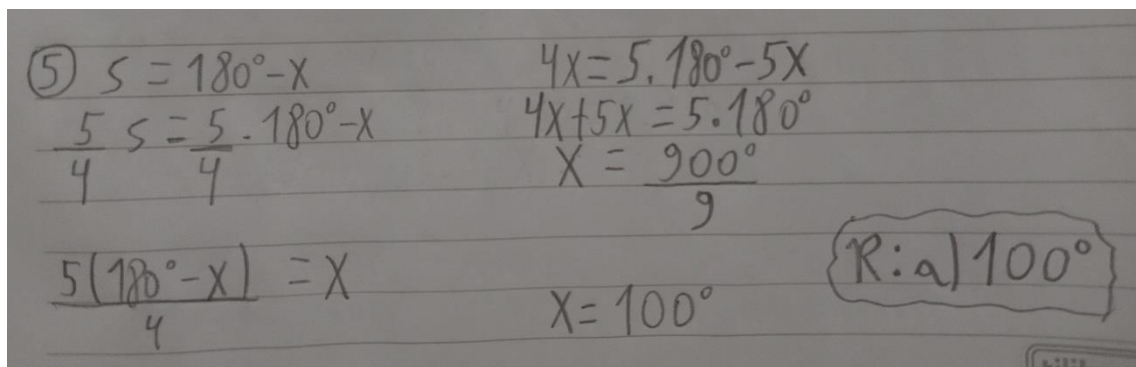 ⑤ S = 180° - X
5/4 S = 5/4 . 180° - X
5(180° - X)/4 = X
4X = 5.180° - 5X
4X + 5X = 5.180°
X = 900°/9
X = 100°
R: a) 100°